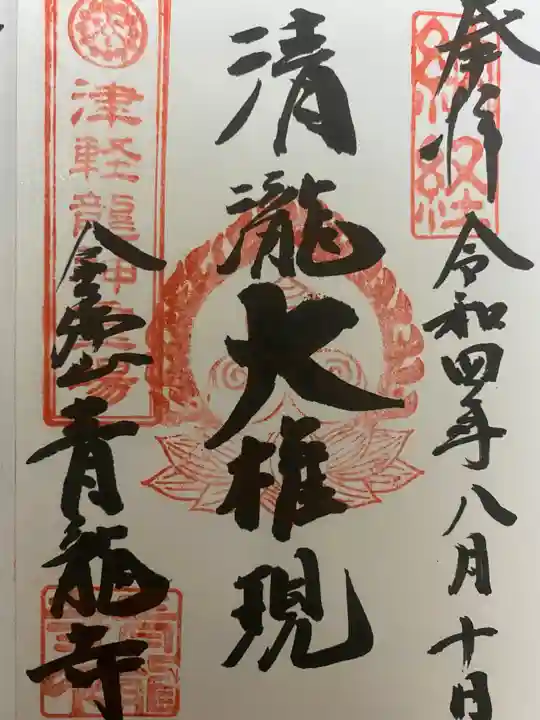 奉拝
納経
令和四年八月十日
清瀧大権現
津軽龍神霊場
青龍寺